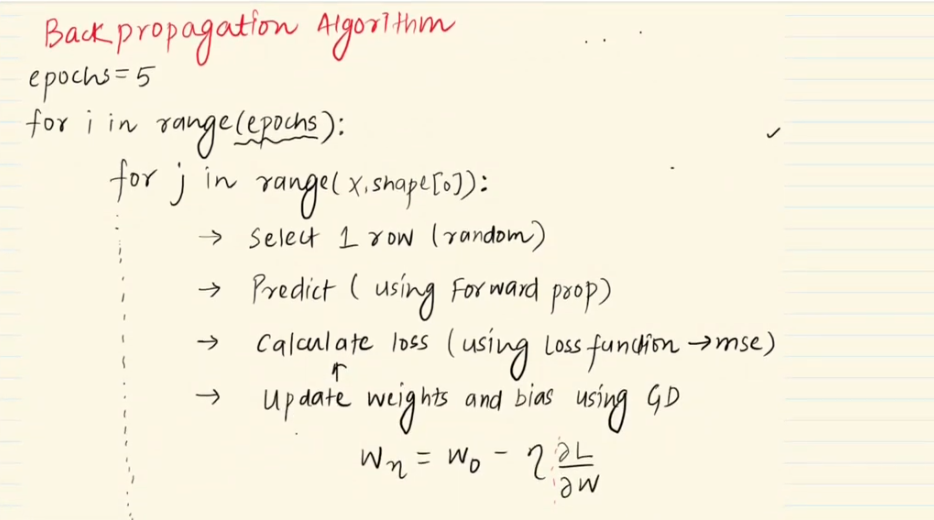 Backpropagation Algorithm
epochs=5
for i in range(epochs):
for j in range(x.shape[0]):
→ Select 1 row (random)
→ Predict (using Forward prop)
→ Calculate loss (using Loss function → mse)
→ Update weights and bias using GD
Wn = Wo - η ∂L/∂W